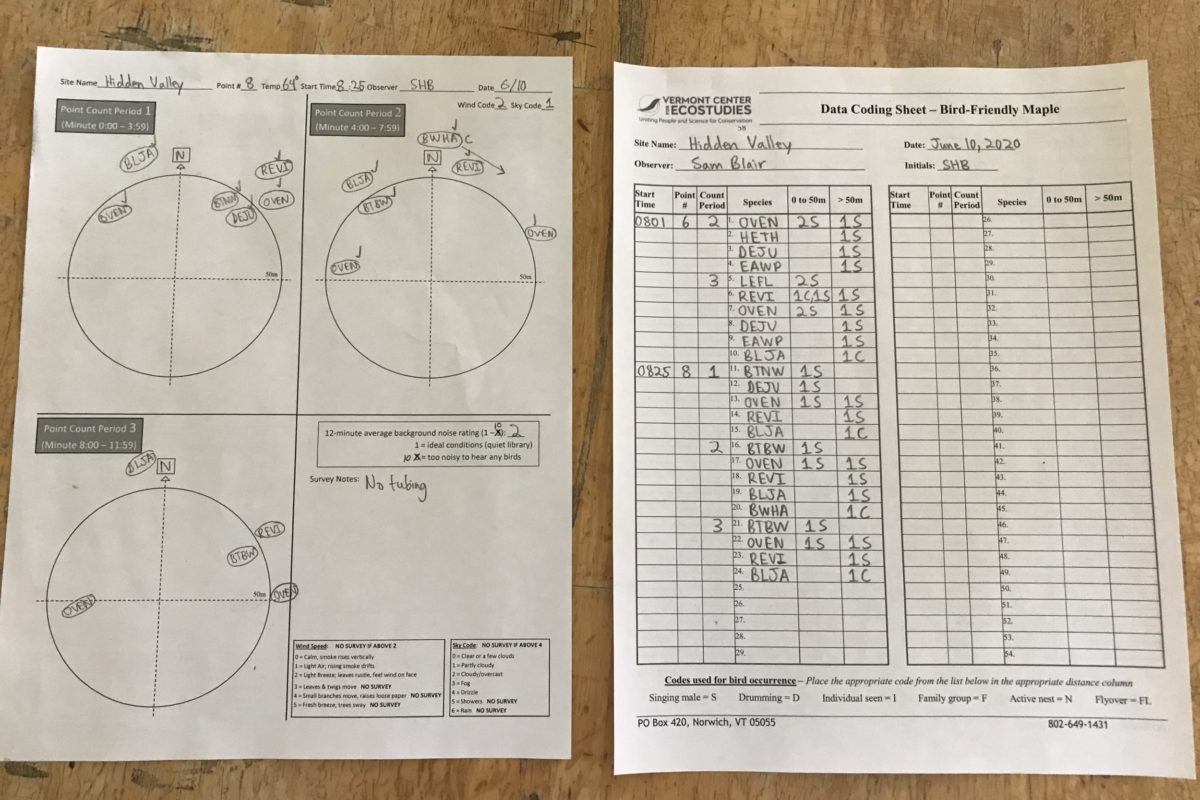 Site Name Hidden Valley Point # 8 Temp 64° Start Time 8:25 Observer SHB Date 6/10
Wind Code 2 Sky Code 1
Point Count Period 1
(Minute 0:00 – 3:59)
BLJA
N
REVI
OVEN
BTNW
OVEN
DEJU
50m
Point Count Period 2
(Minute 4:00 – 7:59)
BWHA C
N
REVI
BLJA
BTBW
OVEN
OVEN
50m
Point Count Period 3
(Minute 8:00 – 11:59)
BLJA
N
REVI
BTBW
OVEN
50m
OVEN
12-minute average background noise rating (1 – 10): 2
1 = ideal conditions (quiet library)
10 = too noisy to hear any birds
Survey Notes: No tubing
Wind Speed: NO SURVEY IF ABOVE 2
0 = Calm, smoke rises vertically
1 = Light Air; rising smoke drifts
2 = Light Breeze; leaves rustle, feel wind on face
3 = Leaves & twigs move NO SURVEY
4 = Small branches move, raises loose paper NO SURVEY
5 = Fresh breeze, trees sway NO SURVEY
Sky Code: NO SURVEY IF ABOVE 4
0 = Clear or a few clouds
1 = Partly cloudy
2 = Cloudy/overcast
3 = Fog
4 = Drizzle
5 = Showers NO SURVEY
6 = Rain NO SURVEY
VERMONT CENTER
FOR ECOSTUDIES
Uniting People and Science for Conservation
Data Coding Sheet – Bird-Friendly Maple
Site Name: Hidden Valley Date: June 10, 2020
Observer: Sam Blair Initials: SHB
Start Time Point # Count Period Species 0 to 50m > 50m
0801 6 2 1. OVEN 2S 1S
2. HETH 1S
3. DEJU 1S
4. EAWP 1S
3 5. LEFL 2S
6. REVI 1C,1S 1S
7. OVEN 2S 1S
8. DEJU 1S
9. EAWP 1S
10. BLJA 1C
0825 8 1 11. BTNW 1S
12. DEJU 1S
13. OVEN 1S 1S
14. REVI 1S
15. BLJA 1C
2 16. BTBW 1S
17. OVEN 1S 1S
18. REVI 1S
19. BLJA 1S
20. BWHA 1C
3 21. BTBW 1S
22. OVEN 1S 1S
23. REVI 1S
24. BLJA 1C
25.
26.
27.
28.
29.
Start Time Point # Count Period Species 0 to 50m > 50m
26.
27.
28.
29.
30.
31.
32.
33.
34.
35.
36.
37.
38.
39.
40.
41.
42.
43.
44.
45.
46.
47.
48.
49.
50.
51.
52.
53.
54.
Codes used for bird occurrence – Place the appropriate code from the list below in the appropriate distance column
Singing male = S Drumming = D Individual seen = I Family group = F Active nest = N Flyover = FL
PO Box 420, Norwich, VT 05055 802-649-1431